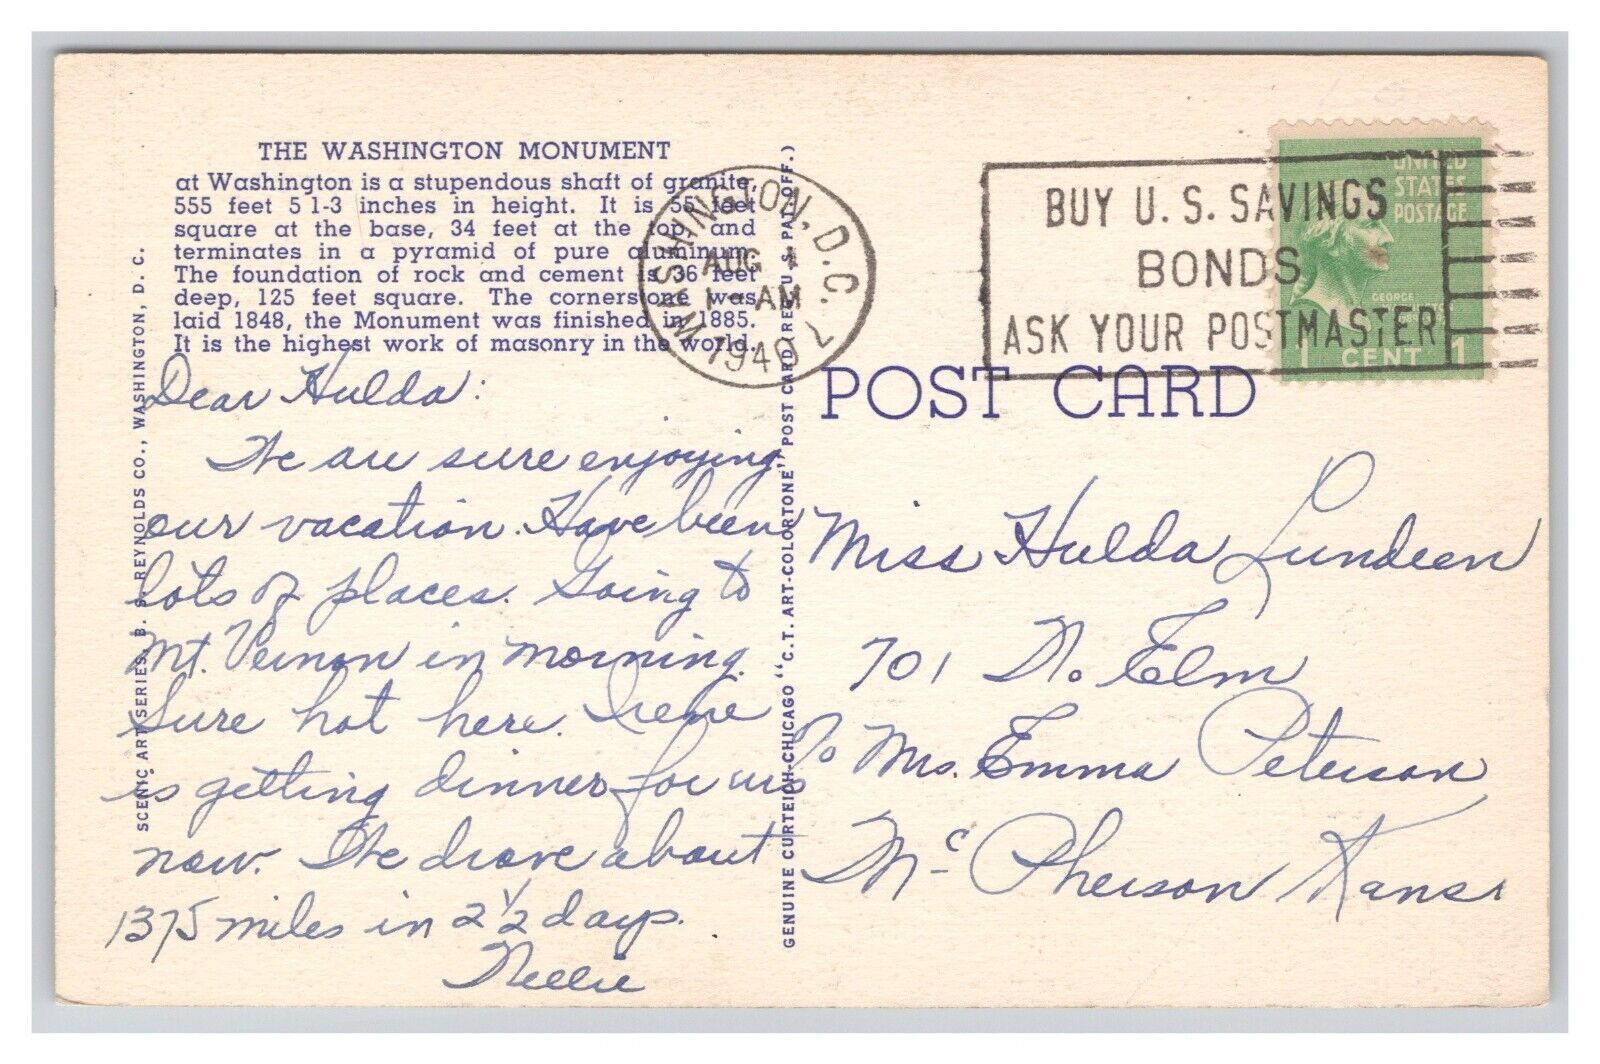 THE WASHINGTON MONUMENT
at Washington is a stupendous shaft of granite,
555 feet 5 1-3 inches in height. It is 55 feet
square at the base, 34 feet at the top, and
terminates in a pyramid of pure aluminum.
The foundation of rock and cement is 36 feet
deep, 125 feet square. The cornerstone was
laid 1848, the Monument was finished in 1885.
It is the highest work of masonry in the world.
Dear Hulda:
We are sure enjoying
our vacation. Have been
lots of places. Going to
Mt. Vernon in morning.
Sure hot here. Irene
is getting dinner for us
now. We drove about
1375 miles in 2 1/2 days.
Nellie
SCENIC ART SERIES, B. S. REYNOLDS CO., WASHINGTON, D. C.
GENUINE CURTEICH-CHICAGO "C.T. ART-COLORTONE" POST CARD (REG. U.S. PAT. OFF.)
WASHINGTON, D.C. 7
AUG 1
1-AM
1940
BUY U.S. SAVINGS
BONDS
ASK YOUR POSTMASTER
UNITED
STATES
POSTAGE
GEORGE
WASHINGTON
1 CENT 1
POST CARD
Miss Hulda Lundeen
701 N. Elm
% Mrs. Emma Peterson
McPherson Kans.